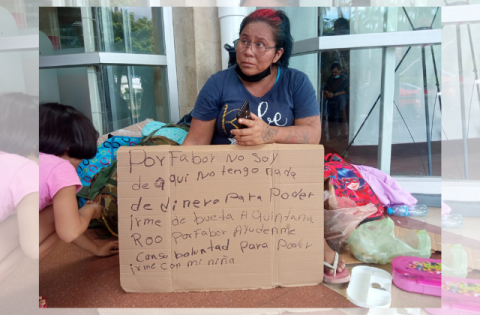 Por fabor No soy
de aqui No tengo nada
de dinero Para Poder
irme de buelta A Quintana
Roo Por fabor Ayudenme
Con su boluntad para poder
irme con mi niña